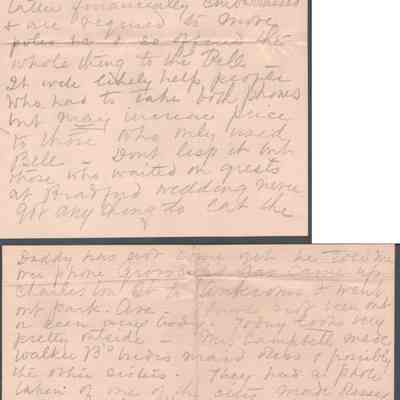 latter financially embarrassed
& are required to move
poles &c & so offered the
whole thing to the Bell –
It will likely help people
who had to take both phones
but may increase price
to those who only used
Bell – Dont lisp it but
those who waited on guests
at Bradford wedding never
got any thing to eat the
Daddy has not come yet he told me
over phone Gas came up
Charleston to & went
out park. Ave – have not been out
or seen any today. Today looks very
pretty outside – Mrs. Campbell made
Walker Bros brides maid dress & possibly
the other sisters. They had a photo
taken of one of the Maude